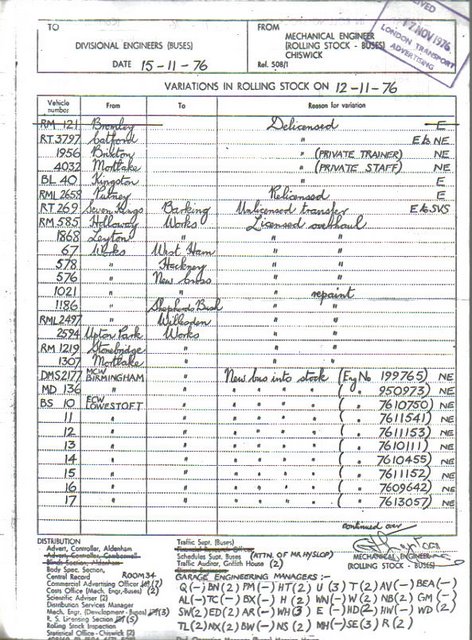 TO
DIVISIONAL ENGINEERS (BUSES)
DATE 15-11-76
FROM
MECHANICAL ENGINEER
(ROLLING STOCK - BUSES)
CHISWICK
Ref. 508/1
17 NOV 1976
LONDON TRANSPORT
ADVERTISING
VARIATIONS IN ROLLING STOCK ON 12-11-76
Vehicle number From To Reason for variation
RM 121 Bromley Delicensed E
RT 3797 Catford " E to NE
1956 Brixton " (PRIVATE TRAINER) NE
4032 Mortlake " (PRIVATE STAFF) NE
BL 40 Kingston " E
RML 2658 Putney Relicensed E
RT 269 Seven Kings Barking Unlicensed transfer E to SVS
RM 585 Holloway Works Licensed overhaul
1868 Leyton " " "
67 Works West Ham " "
578 " Hackney " "
576 " New Cross " "
1021 " " " repaint
1186 " Shepherds Bush " "
RML 2497 " Willesden " "
2594 Upton Park Works " "
RM 1219 Stonebridge " " "
1307 Mortlake " " "
DMS 2177 MCW BIRMINGHAM " New bus into stock (Eng No 199765) NE
MD 136 " " " " " " ( " 950973) NE
BS 10 ECW LOWESTOFT " " " " " ( " 7610750) NE
11 " " " " " " ( " 7611541) NE
12 " " " " " " ( " 7611153) NE
13 " " " " " " ( " 7610111) NE
14 " " " " " " ( " 7610455) NE
15 " " " " " " ( " 7611152) NE
16 " " " " " " ( " 7609642) NE
17 " " " " " " ( " 7613057) NE
continued over
MECHANICAL ENGINEER
(ROLLING STOCK - BUSES)
DISTRIBUTION
Advert. Controller, Aldenham
Body Spec. Section,
Central Record ROOM 34
Commercial Advertising Officer (7)
Costs Office (Mech. Engr.-Buses) (2)
Scientific Adviser (2)
Distribution Services Manager
Mech. Engr. (Development - Signs) (3)
R. S. Licensing Section (5)
Rolling Stock Inspection
Statistical Office - Chiswick (2)
Traffic Supt. (Buses)
Schedules Supt. Buses (ATTN. OF MR. HYSLOP)
Traffic Auditor, Griffith House (2)
GARAGE ENGINEERING MANAGERS :-
Q(-) BN(2) PM(-) HT(2) U(3) T(2) AV(-) BEA(-)
AL(-) TC(-) BX(-) H(2) WN(-) W(2) NB(2) GM(-)
SW(2) ED(2) AR(-) WH(3) E(-) HD(2) HW(-) WD(2)
TL(2) NX(2) BW(-) NS(2) MH(-) SE(3) R(2)